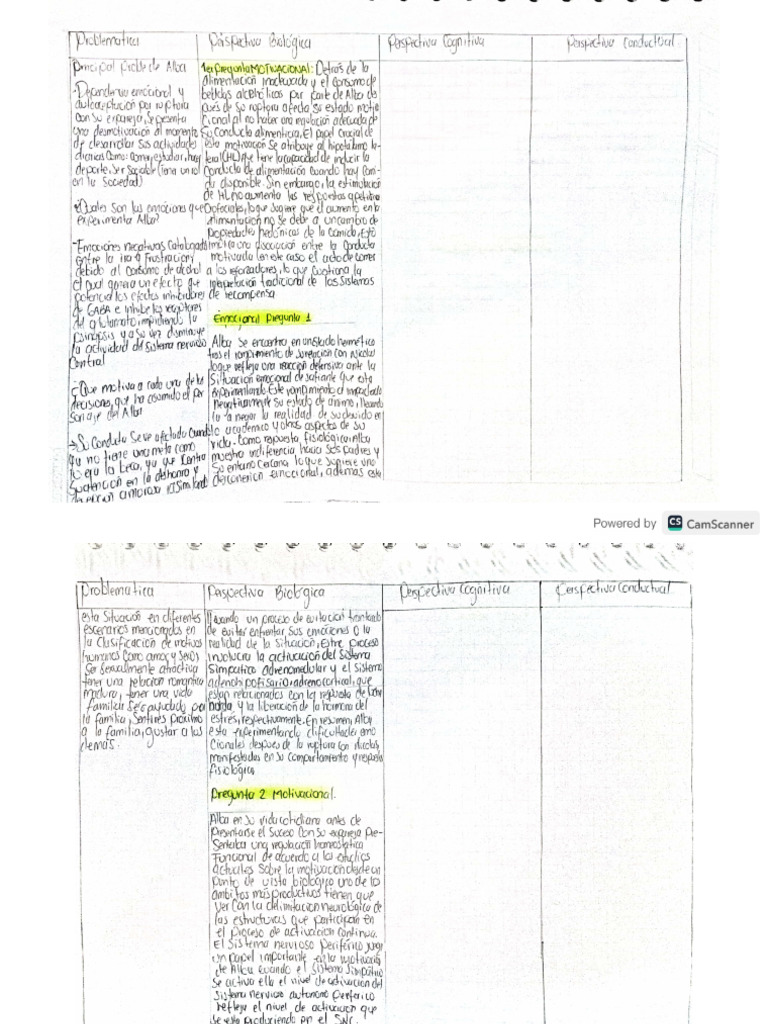 Problematica
Perspectiva Biológica
Perspectiva Cognitiva
Perspectiva Conductual.
Principal proble de Alba
-Dependencia emocional y
autoaceptación por ruptura
con su expareja, se presenta
una desmotivación al momento
de desarrollar sus actividades
diarias como: comer, estudiar, hacer
deporte, ser sociable (
en la Sociedad)
¿Cuales son las emociones que
experimenta Alba?
-Emociones negativas catalogada
entre la ira y Frustracion y
debido al consumo de alcohol
el cual genera un efecto que
potencia los efectos inhibidores
de GABA e inhibe los receptores
del glutamato impidiendo la
sinopsis y a su vez disminuye
la actividad del sistema nervioso
Central
¿Que motiva a cada una de las
decisiones, que ha asumido el per
sonaje de Alba
→Su conducta se ve afectada cuando
ya no tiene una meta como
lo era la beca, ya que centra
su atencion en el deshonra y
1era Pregunta MOTIVACIONAL: Detrás de la
alimentación inadecuada y el consumo de
bebidas alcohólicas por parte de Alba des
pués de su ruptura afecta su estado motiva
cional al no haber una regulación adecuada de
su conducta alimenticia, El papel crucial de
esta motivación se atribuye al hipotálamo la-
teral (HL) que tiene la capacidad de inducir la
Conducta de alimentación cuando hay comi-
da disponible. Sin embargo, la estimulación
de HL no aumenta las respuestas apetitiva
Orofaciales, lo que sugiere que el aumento en la
alimentación no se debe a un cambio de
propiedades hedónicas de la comida, Esto
implica una disociación entre la Conducta
motivada (en este caso el acto de comer)
a los reforzadores, lo que cuestiona la
interpretación tradicional de los Sistemas
de recompensa
Emocional Pregunta 1
Alba Se encuentra en un stado hermético
tras el rompimiento de su relación con Nicolas
lo que refleja una reacción defensiva ante la
Situación emocional desafiante que esta
experimentando. Este rompimiento a impactado
negativamente su estado de ánimo, llevando
la a negar la realidad de su
academico y otros aspectos de su
vida. Como respuesta fisiológica Alba
muestra indiferencia hacia sus padres y
su entorno cercano, lo que sugiere una
desconexion emocional, además esta
Powered by CS CamScanner
Problematica
Perspectiva Biológica
Perspectiva Cognitiva
Perspectiva Conductual.
esta Situación en diferentes
escenarios mencionados en
la Clasificación de motivos
humanos como amor y Sexo,
Ser Sexualmente atractiva
tener una relacion romantica
madura, tener una vida
familiar Ser ayudado por
la familia, Sentirse próximo
a la familia, gustar a los
demás.
llevando un proceso de evitación tratando
de evitar enfrentar sus emociones o la
realidad de la situación, Este proceso
involucra la activación del sistema
Simpatico adrenomedular y el sistema
adenohipofisario-adrenocortical, que
estan relacionados con la respuesta de lucha
huida, y la liberación de la hormona del
estrés, respectivamente. En resumen, Alba
esta experimentando dificultades emo
cionales despues de la ruptura con Nicolas,
manifestadas en su comportamiento y respuesta
fisiológica
Pregunta 2 Motivacional.
Alba en su vida cotidiana antes de
presentarse el Suceso Con Su expareja Pre-
Sentaba una regulación homeostatica
Funcional de acuerdo a los estudios
actuales Sobre la motivación desde un
punto de vista biológico uno de lo
ambitos más productivos tienen que
ver con la delimitación neurológica de
las estructuras que participan en
el Proceso de activacion continua.
El Sistema nervioso periferico juega
un papel importante en la motivación
de Alba cuando el Sistema Simpatico
Se activa ella el nivel de activación del
Sistema nervioso autonomo periferico
refleja el nivel de activacion que
se esta produciendo en el SNC.